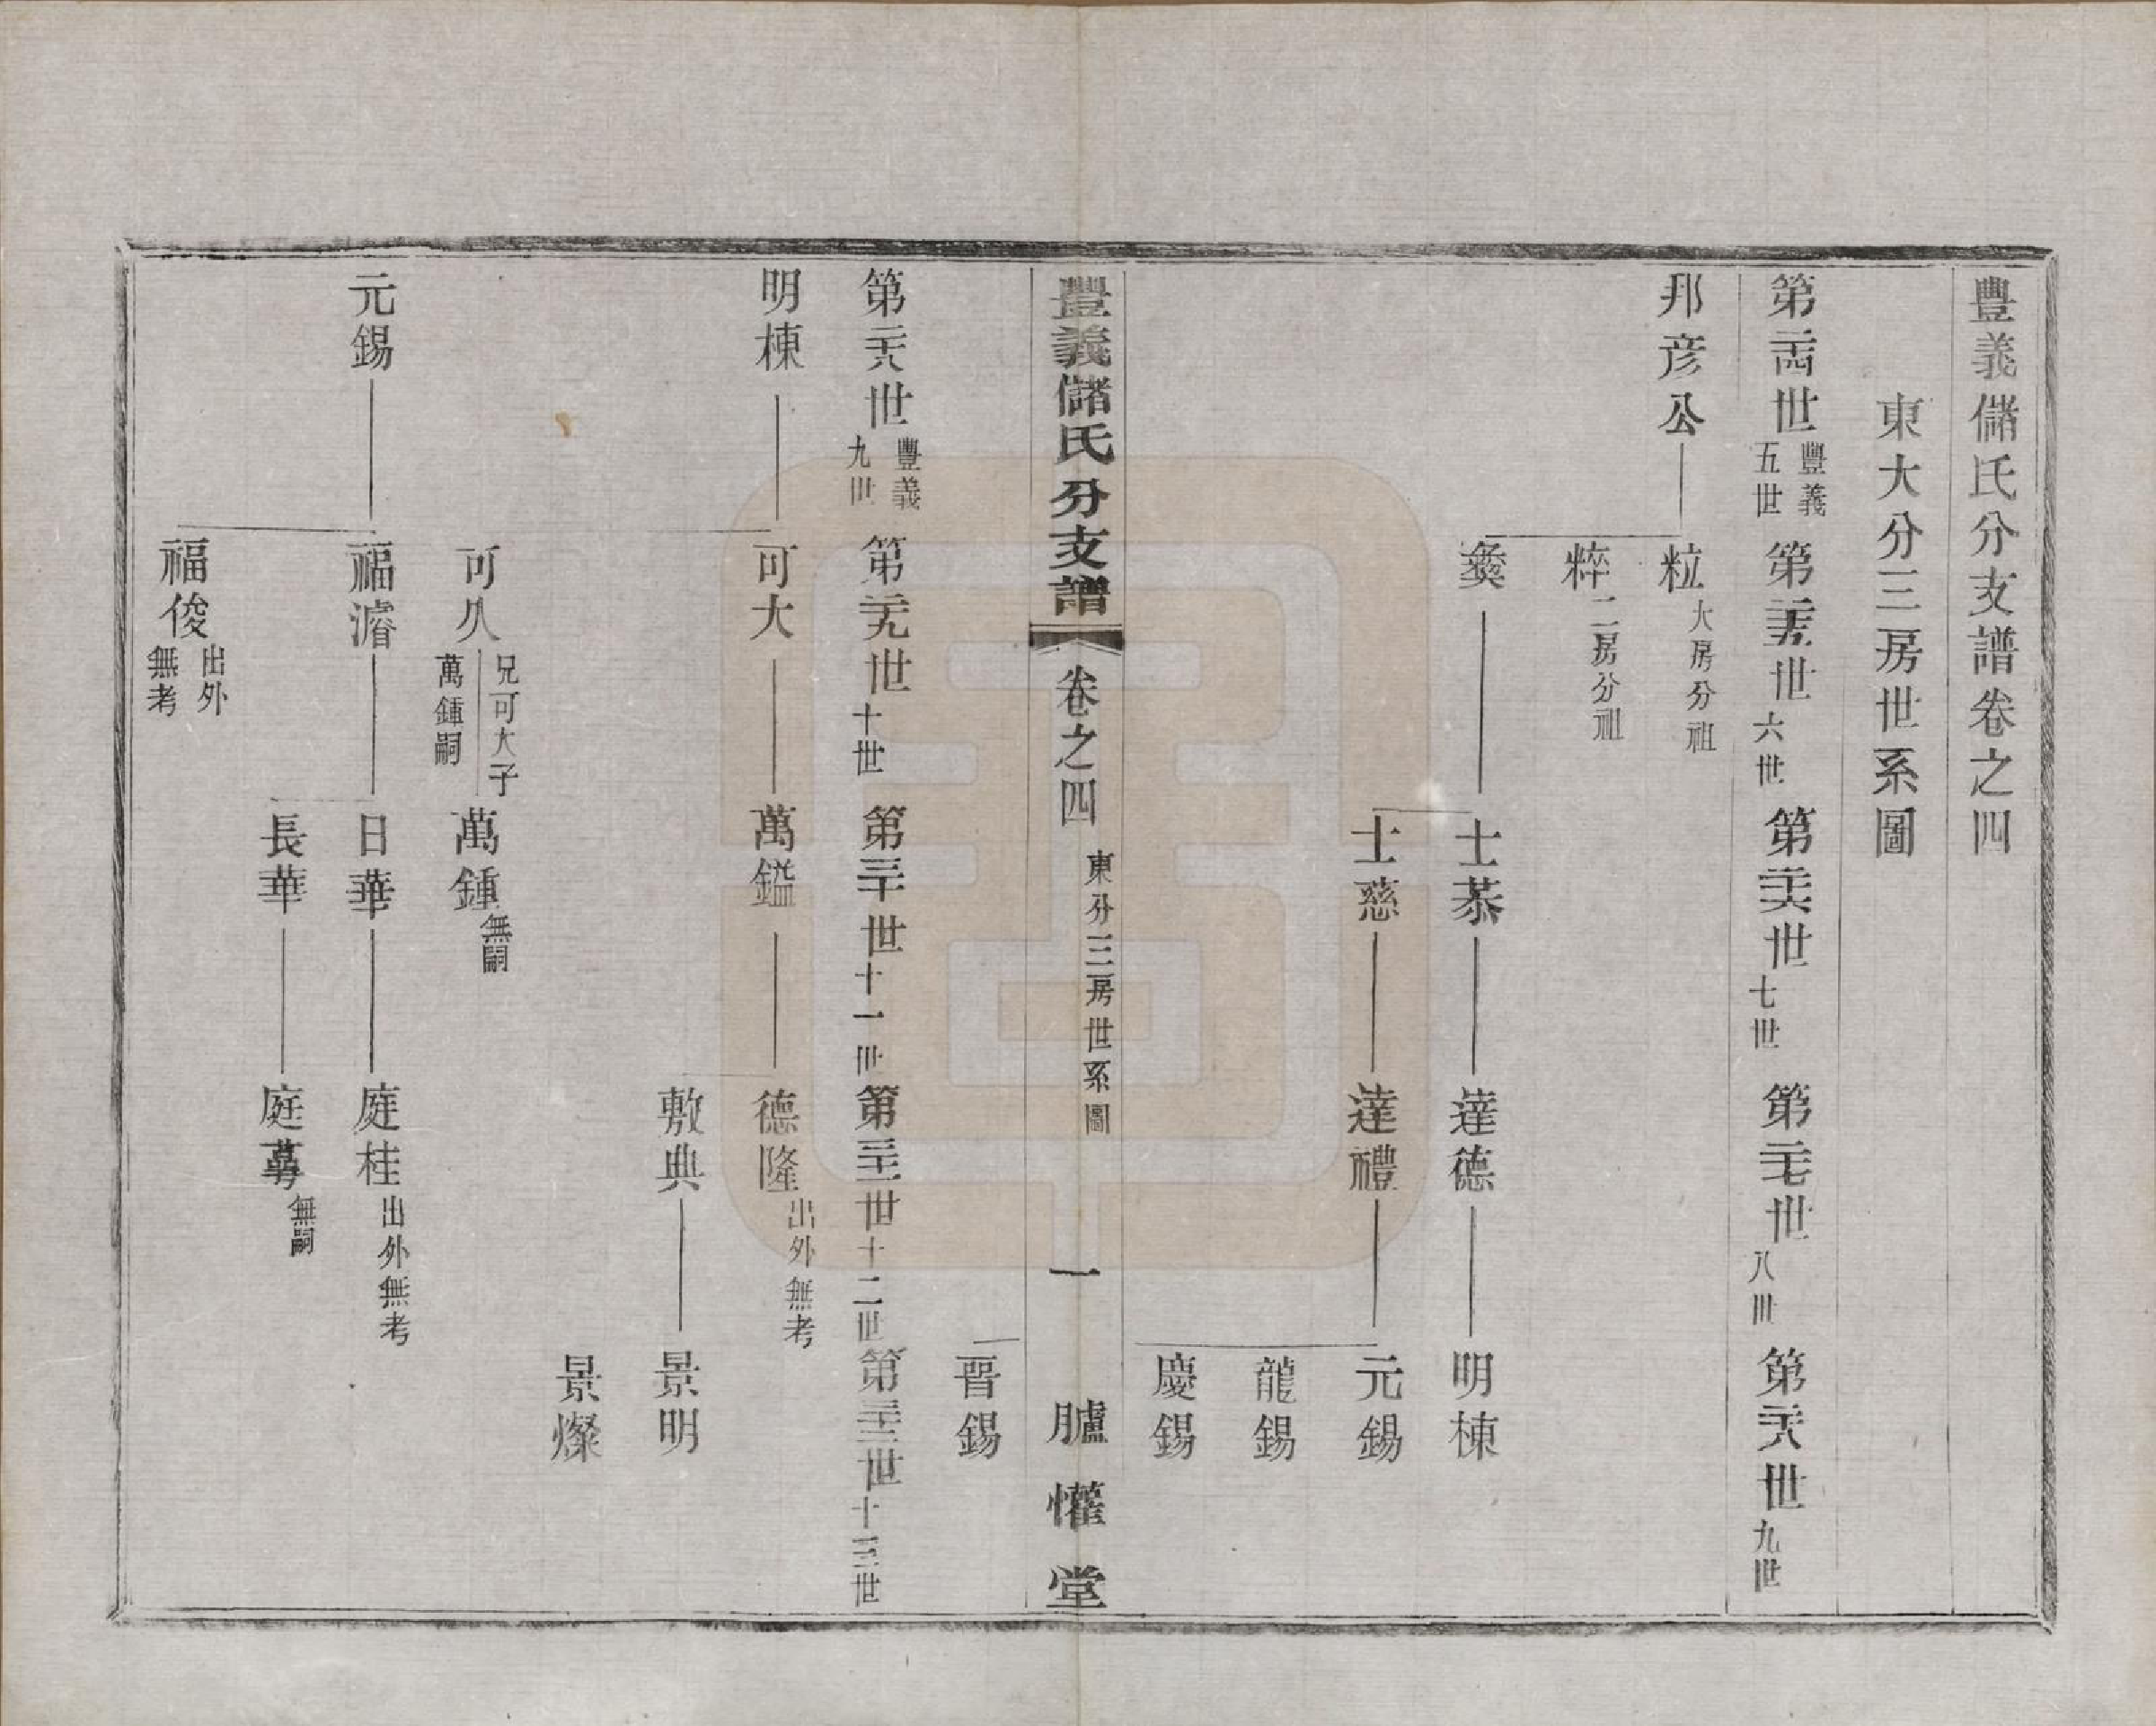 豐義儲氏分支譜卷之四
東大分三房世系圖
第二十四世 豐義五世 第二十五世 六世 第二十六世 七世 第二十七世 八世 第二十八世 九世
邦彦公 粒 大房分祖
粹 二房分祖
士恭 達德 明棟
士慈 達禮 元錫
龍錫
慶錫
豐義儲氏分支譜 卷之四 東分三房世系圖 一 臚懽堂
晋錫
第二十八世 豐義九世 第二十九世 十世 第三十世 十一世 第三十一世 十二世 第三十二世 十三世
明棟 可大 萬鎰 德隆 出外無考
敷典 景明
景燦
可久 兄可大子萬鍾嗣 萬鍾 無嗣
元錫 福濬 日華 庭桂 出外無考
長華 庭蕚 無嗣
福俊 出外無考